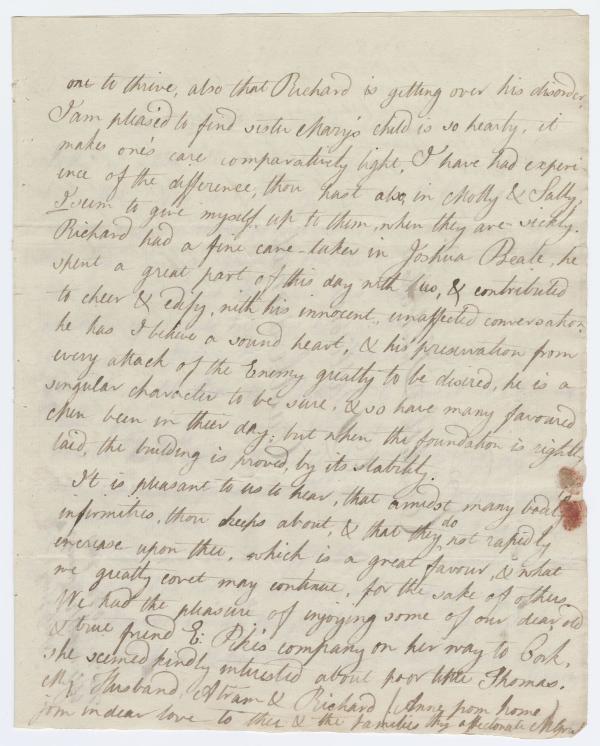 one to thrive, also that Richard is getting over his disorder.
I am pleas'd to find sister Mary's child is so hearty, it
makes one's care comparatively light, I have had experi-
ence of the difference, thou hast also, in Molly & Sally,
I seem to give myself up to them, when they are sickly.
Richard had a fine care-taker in Joshua Beale, he
spent a great part of this day with us, & contributed
to cheer & edify, with his innocent, unaffected conversation,
he has I believe a sound heart, & his preservation from
every attack of the Enemy greatly to be desired, he is a
singular character to be sure, & so have many favoured
been in their day; but when the foundation is rightly
laid, the building is proved, by its stability.
It is pleasant to us to hear, that amidst many bodily
infirmities, thou keeps about, & that they do not rapidly
increase upon thee, which is a great favour, & what
we greatly covet may continue, for the sake of others.
We had the pleasure of enjoying some of our dear old
& true friend E: Pike's company on her way to Cork,
she seemed kindly interested about poor little Thomas.
My Husband, Abram & Richard (Anne from home)
join in dear love to thee & the families thy affectionate